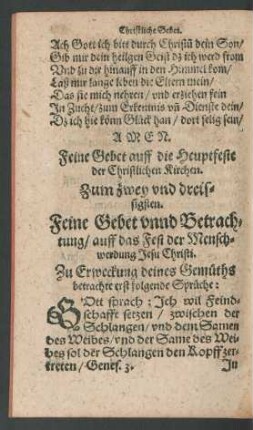 Christliche Gebet.
Ach Gott ich bitt durch Christū dein Son/
Gib mir dein heilgen Geist dz ich werd from
Vnd zu dir hinauff in den Himmel kom/
Laß mir lange leben die Eltern mein/
Das sie mich nehren/ vnd erziehen fein
In Zucht/ zum Erkentnis vñ Dienste dein/
Dz ich hie könn Glück han/ dort selig sein/
A M E N.
Feine Gebet auff die Heuptfeste
der Christlichen Kirchen.
Zum zwey vnd dreis-
sigsten.
Feine Gebet vnnd Betrach-
tung/ auff das Fest der Mensch-
werdung Jesu Christi.
Zu Erweckung deines Gemüths
betrachte erst folgende Sprüche:
GOtt sprach: Ich wil Feind-
schafft setzen/ zwischen der
Schlangen/ vnd dem Samen
des Weibes/ vnd der Same des Wei-
bes sol der Schlangen den Kopff zer-
tretten/ Genes. 3.
In